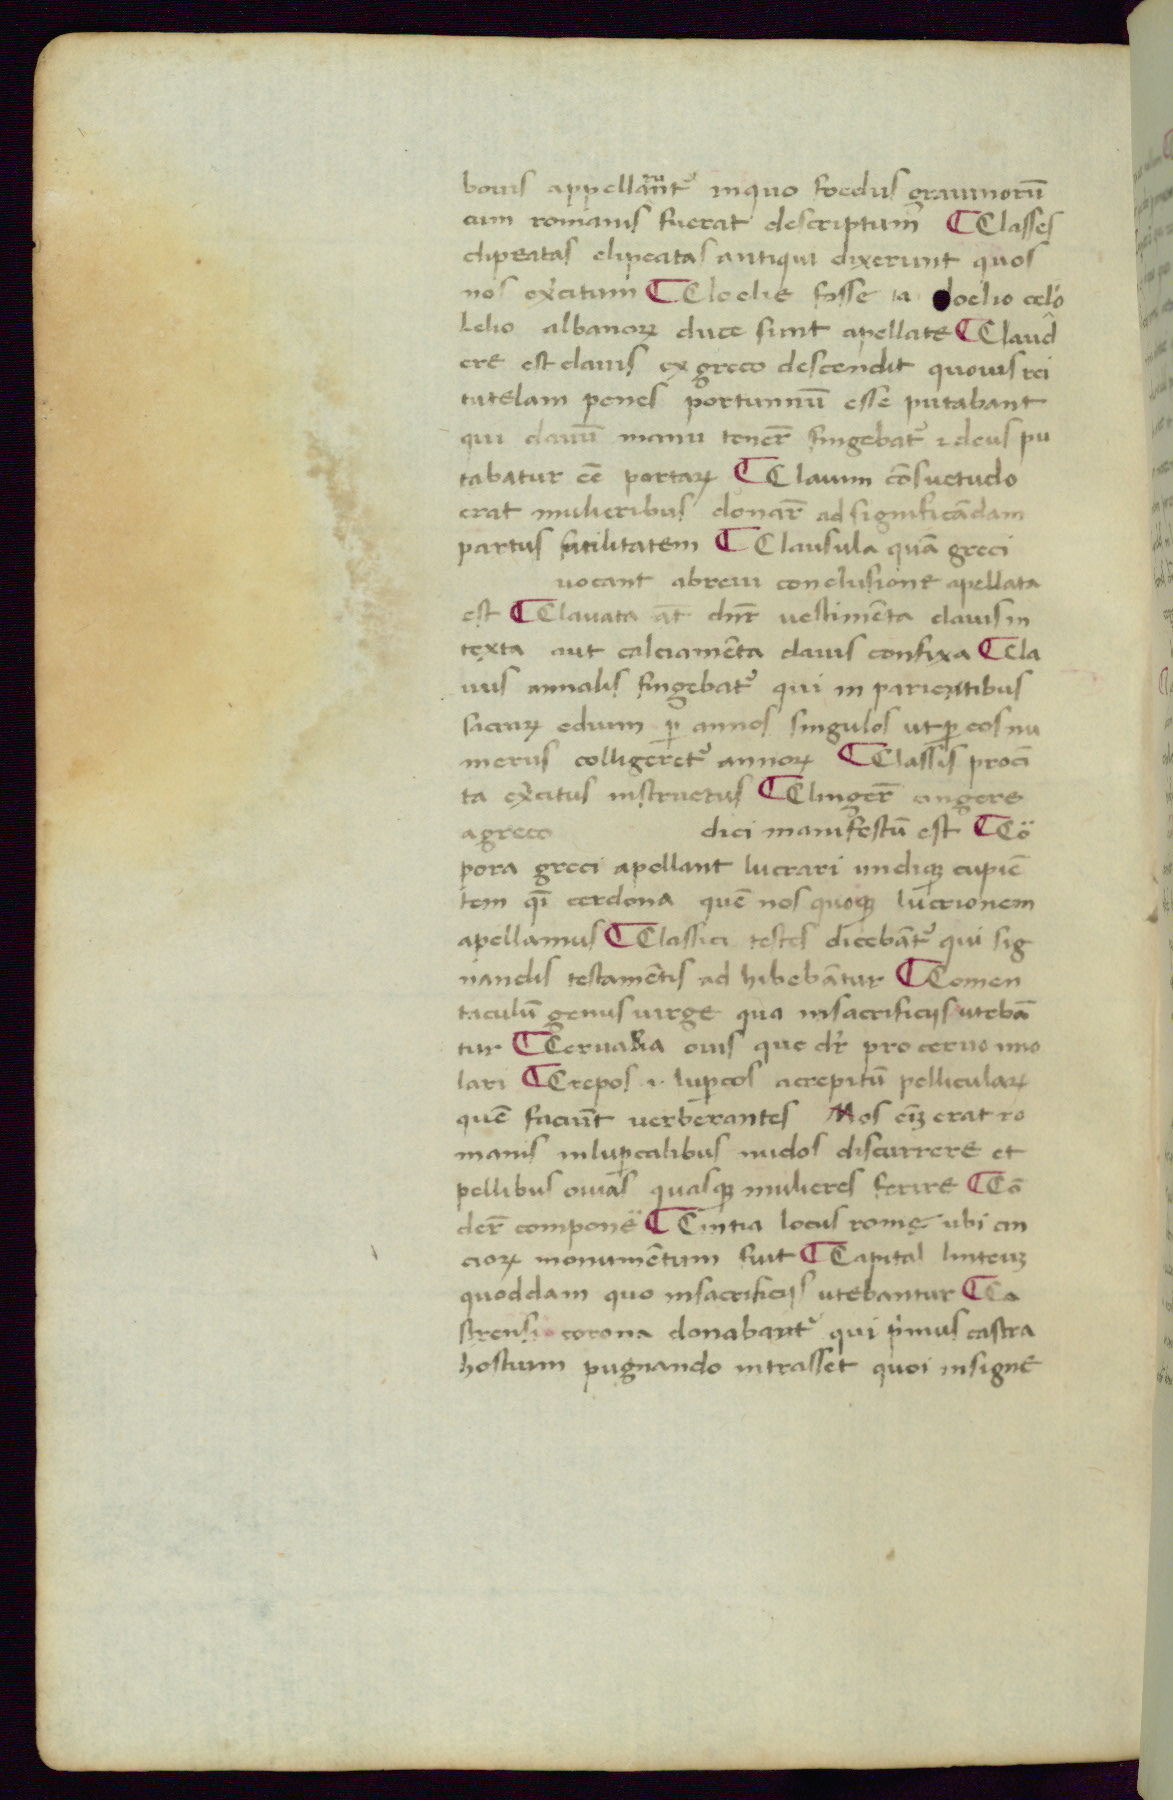 bouis appellãnt᷑ inquo foedus grauinorũ
cum romanis fuerat descriptum ¶ Classes
clipeatas clipeatas antiqui dixerunt quos
nos exc̓itum ¶ Cloelie fosse a cloelio
lelio albanoꝝ duce sunt apellate ¶ Claud̂
ere est clauis ex greco descendit quouis rei
tutelam penes portunnũ esse putabant
qui clauũ manu tener̃ fingebat᷑ ⁊ deus pu
tabatur eẽ portaꝝ ¶ Clauim cõsuetudo
erat mulieribus donar̃ ad significãdam
partus futilitatem ¶ Clausula quã greci
uocant abreui conclusione apellata
est ¶ Clauata aũt dnr̃ uestimẽta clauis in
texta aut calciamẽta clauis confixa ¶ Cla
uus annalis fingebat᷑ qui in parientibus
sacraꝝ edium ꝑ annos singulos ut ꝑ eos nu
merus colligeret᷑ annoꝝ ¶ Classis proci
ta exc̓itus instructus ¶ Clinger̃ cingere
agreco dici manifestũ est ¶ Cõ
pora greci apellant lucrari undiqꝫ cupiẽ
tem qĩ cerdona quẽ nos quoqꝫ lucrionem
apellamus ¶ Classici testes dicebãt᷑ qui sig
nandis testamẽtis ad hibebãtur ¶ Comen
taculũ genus uirge qua insacrificijs utebã
tur ¶ Ceruaria ouis que dr̃ pro ceruo imo
lari ¶ Crepos .i. luꝑcos acrepitũ pelliculaꝝ
quẽ faciũt uerberantes Mos eiꝫ erat ro
manis inluꝑcalibus nudos discurrere et
pellibus ouias quasqꝫ mulieres ferire ¶ Cõ
der̃ componẽ ¶ Cintia locus romę ubi cin
cioꝝ monumẽtum fuit ¶ Capital linteuꝫ
quoddam quo insacrificijs utebantur ¶ Ca
strensi corona donabant᷑ qui p̃mus castra
hostium pugnando intrasset quoi insigne